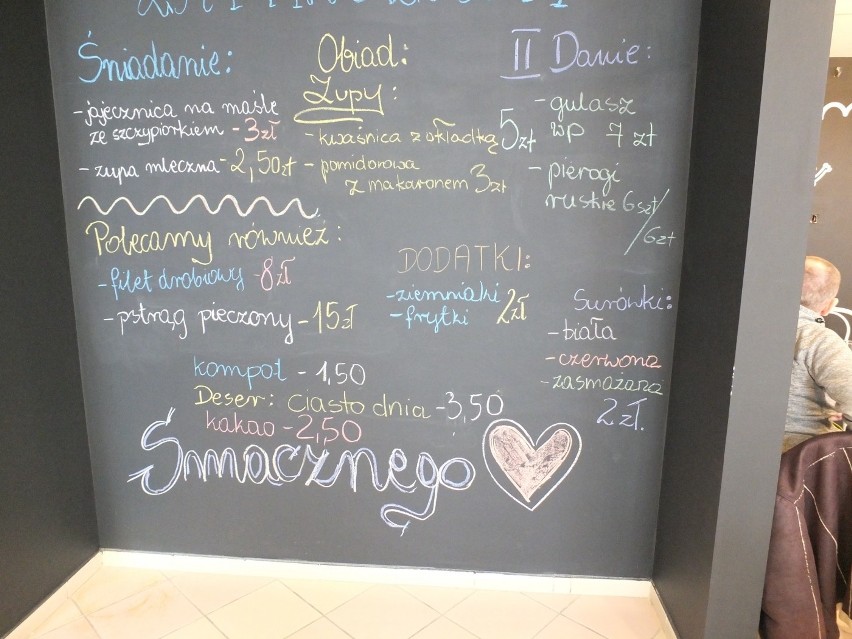 Śniadanie:
- jajecznica na maśle
ze szczypiorkiem - 3zł
- zupa mleczna - 2,50zł
Obiad:
Zupy:
- kwaśnica z okładką 5zł
- pomidorowa
z makaronem 3zł
II Danie:
- gulasz
wp 7 zł
- pierogi
ruskie 6szt/
/6zł
Polecamy również:
- filet drobiowy - 8zł
- pstrąg pieczony - 15zł
DODATKI:
- ziemniaki
- frytki 2zł
Surówki:
- biała
- czerwona
- zasmażana
2zł.
kompot - 1,50
Deser: ciasto dnia - 3,50
kakao - 2,50
Smacznego